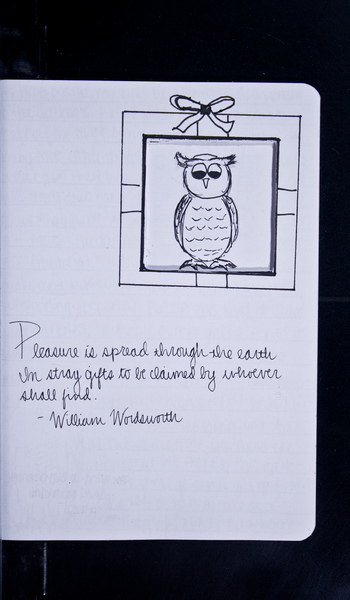 Pleasure is spread through the earth
In stray gifts to be claimed by whoever
shall find.
- William Wordsworth